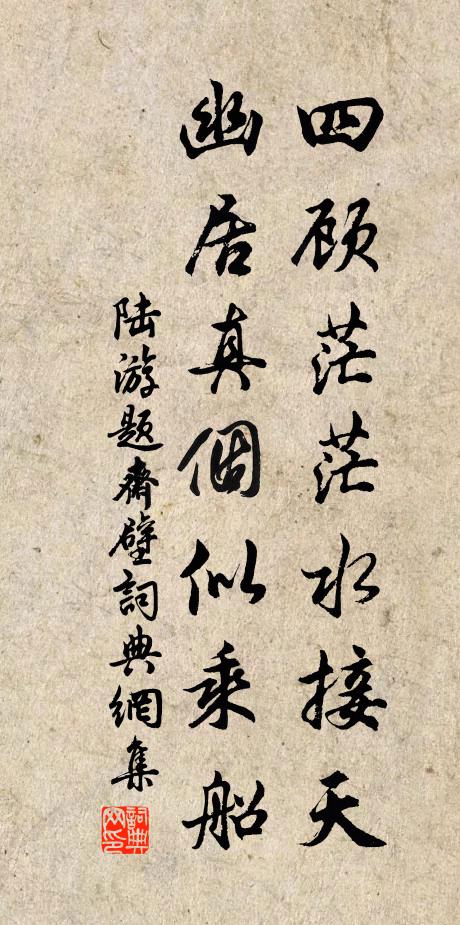 四顾茫茫水接天
幽居真個似乘船
陆游题齋壁詞典網集
詞典网印